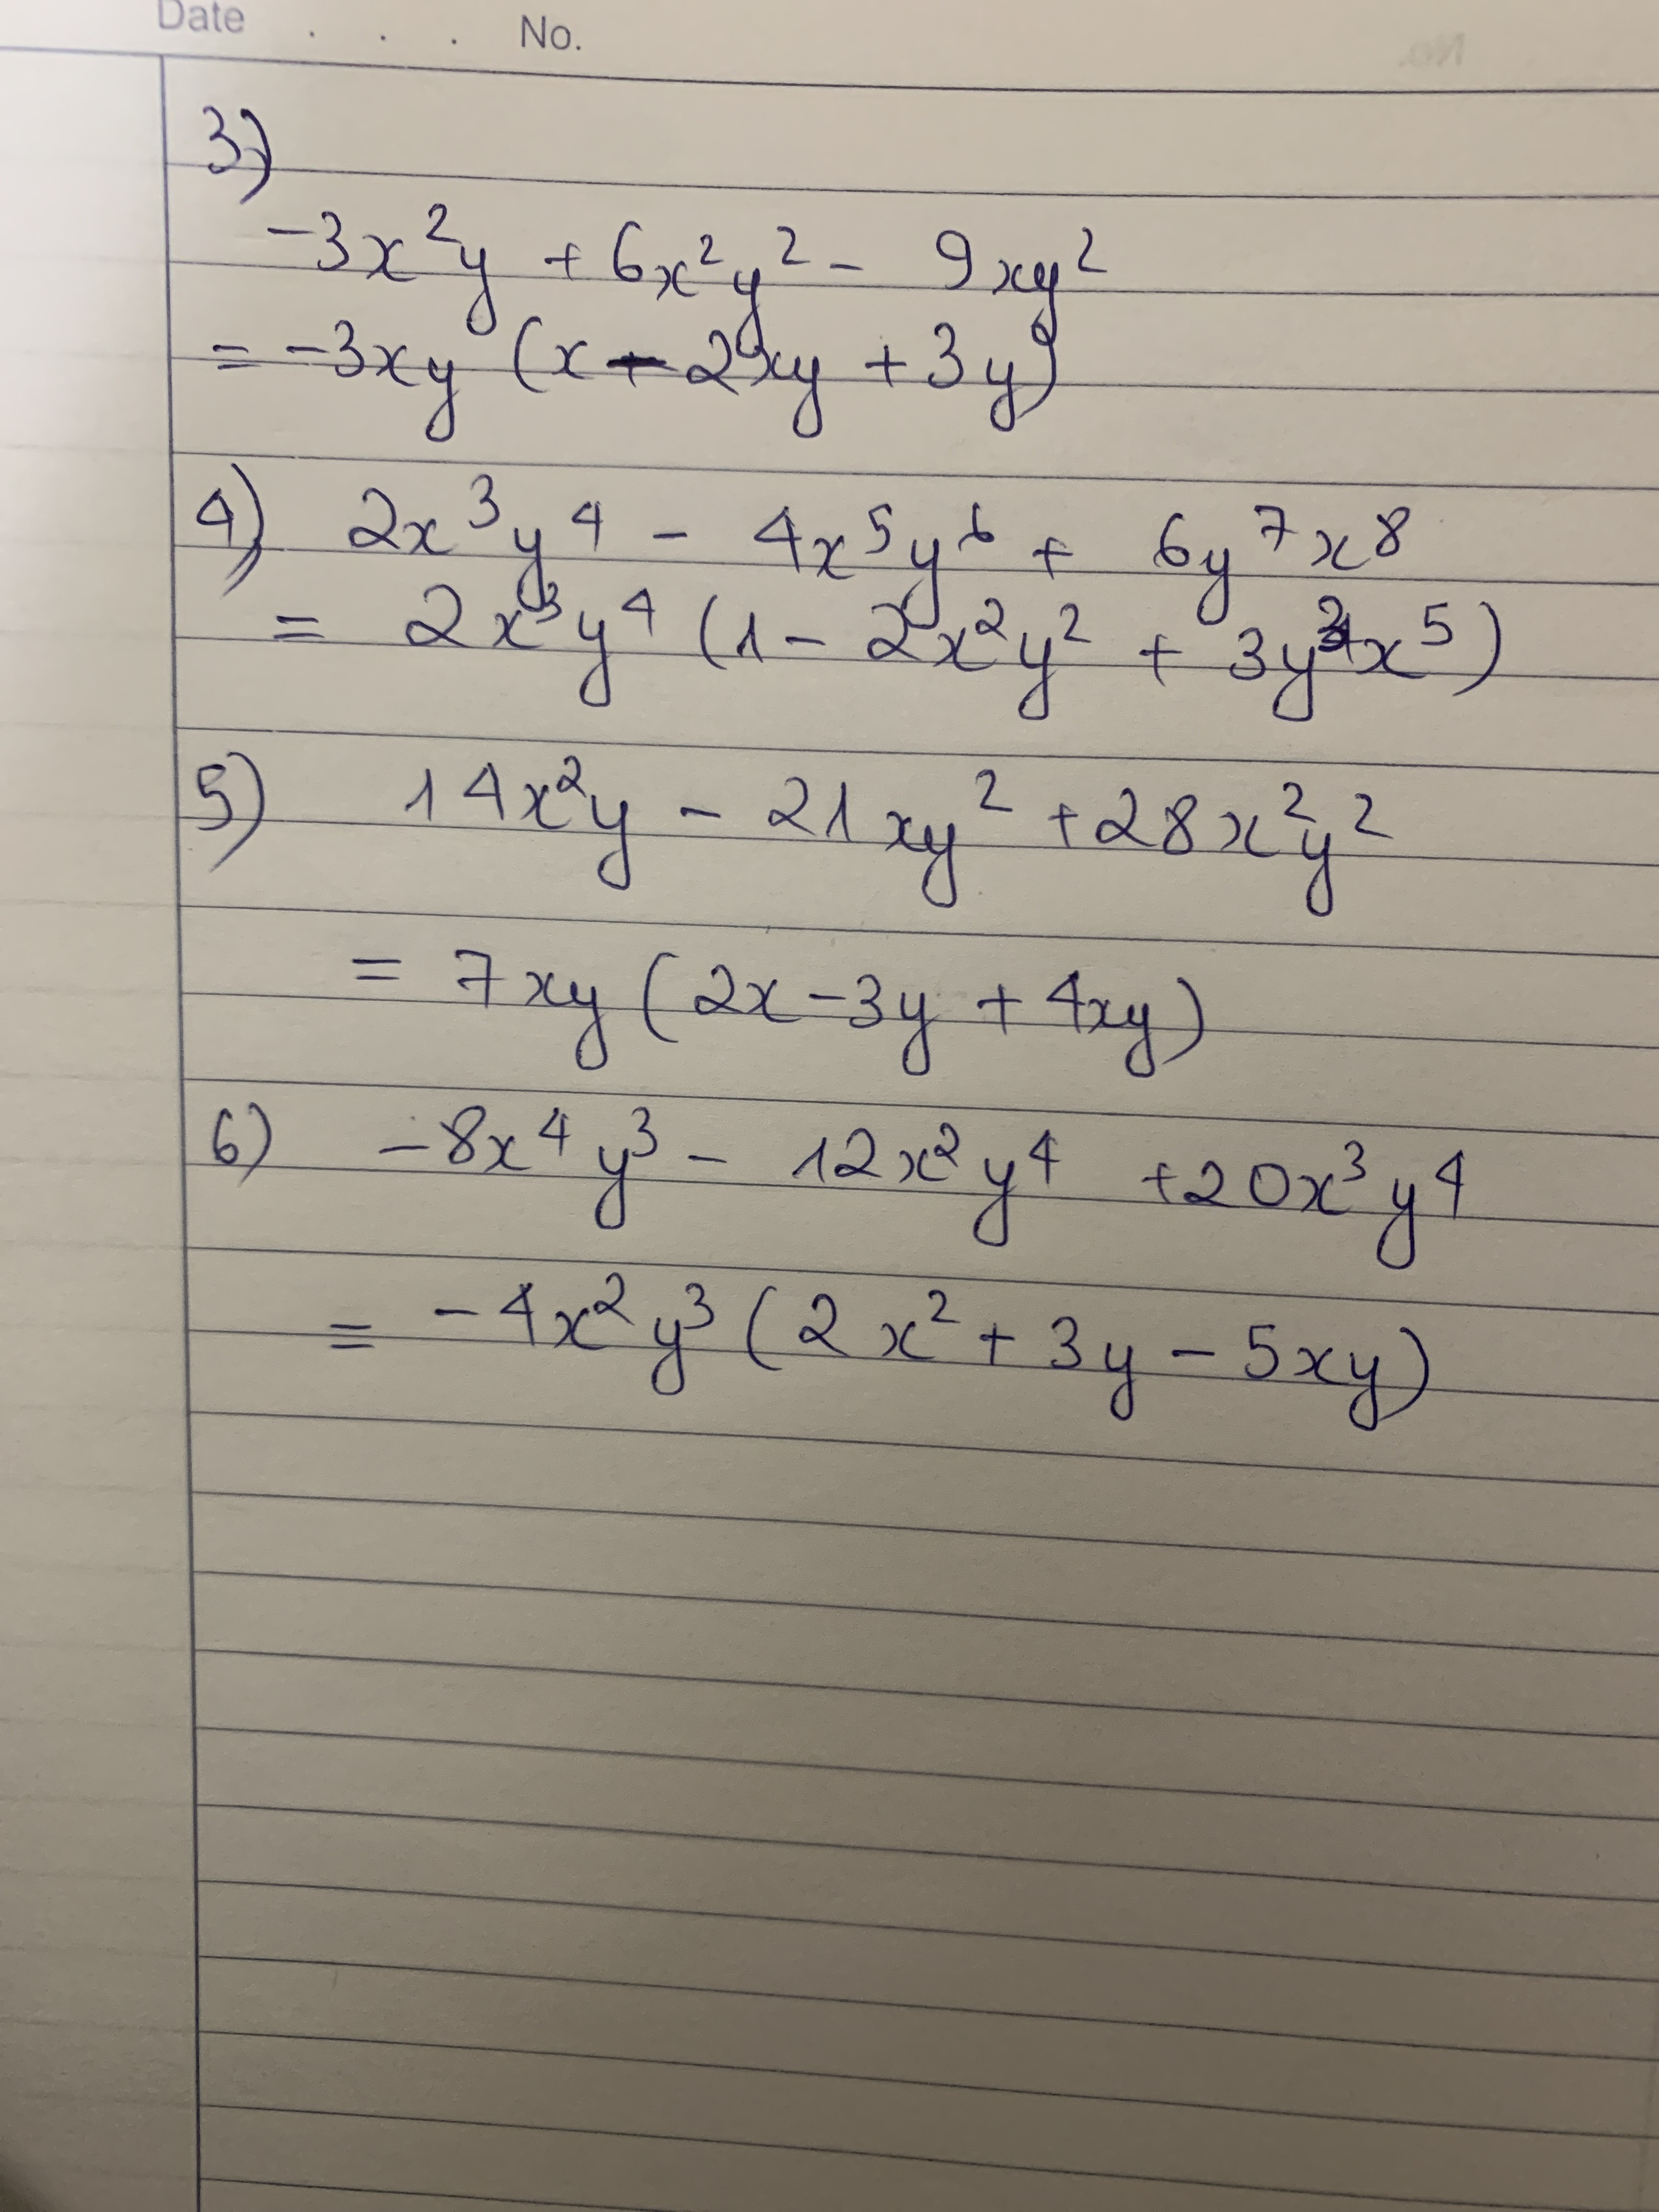 Date . . . No.
3)
-3x²y + 6x²y² - 9xy²
= -3xy (x - 2xy + 3y)
4) 2x³y⁴ - 4x⁵y⁶ + 6y⁷x⁸
= 2x³y⁴ (1 - 2x²y² + 3y³x⁵)
5) 14x²y - 21xy² + 28x²y²
= 7xy (2x - 3y + 4xy)
6) -8x⁴y³ - 12x²y⁴ + 20x³y⁴
= -4x²y³ (2x² + 3y - 5xy)